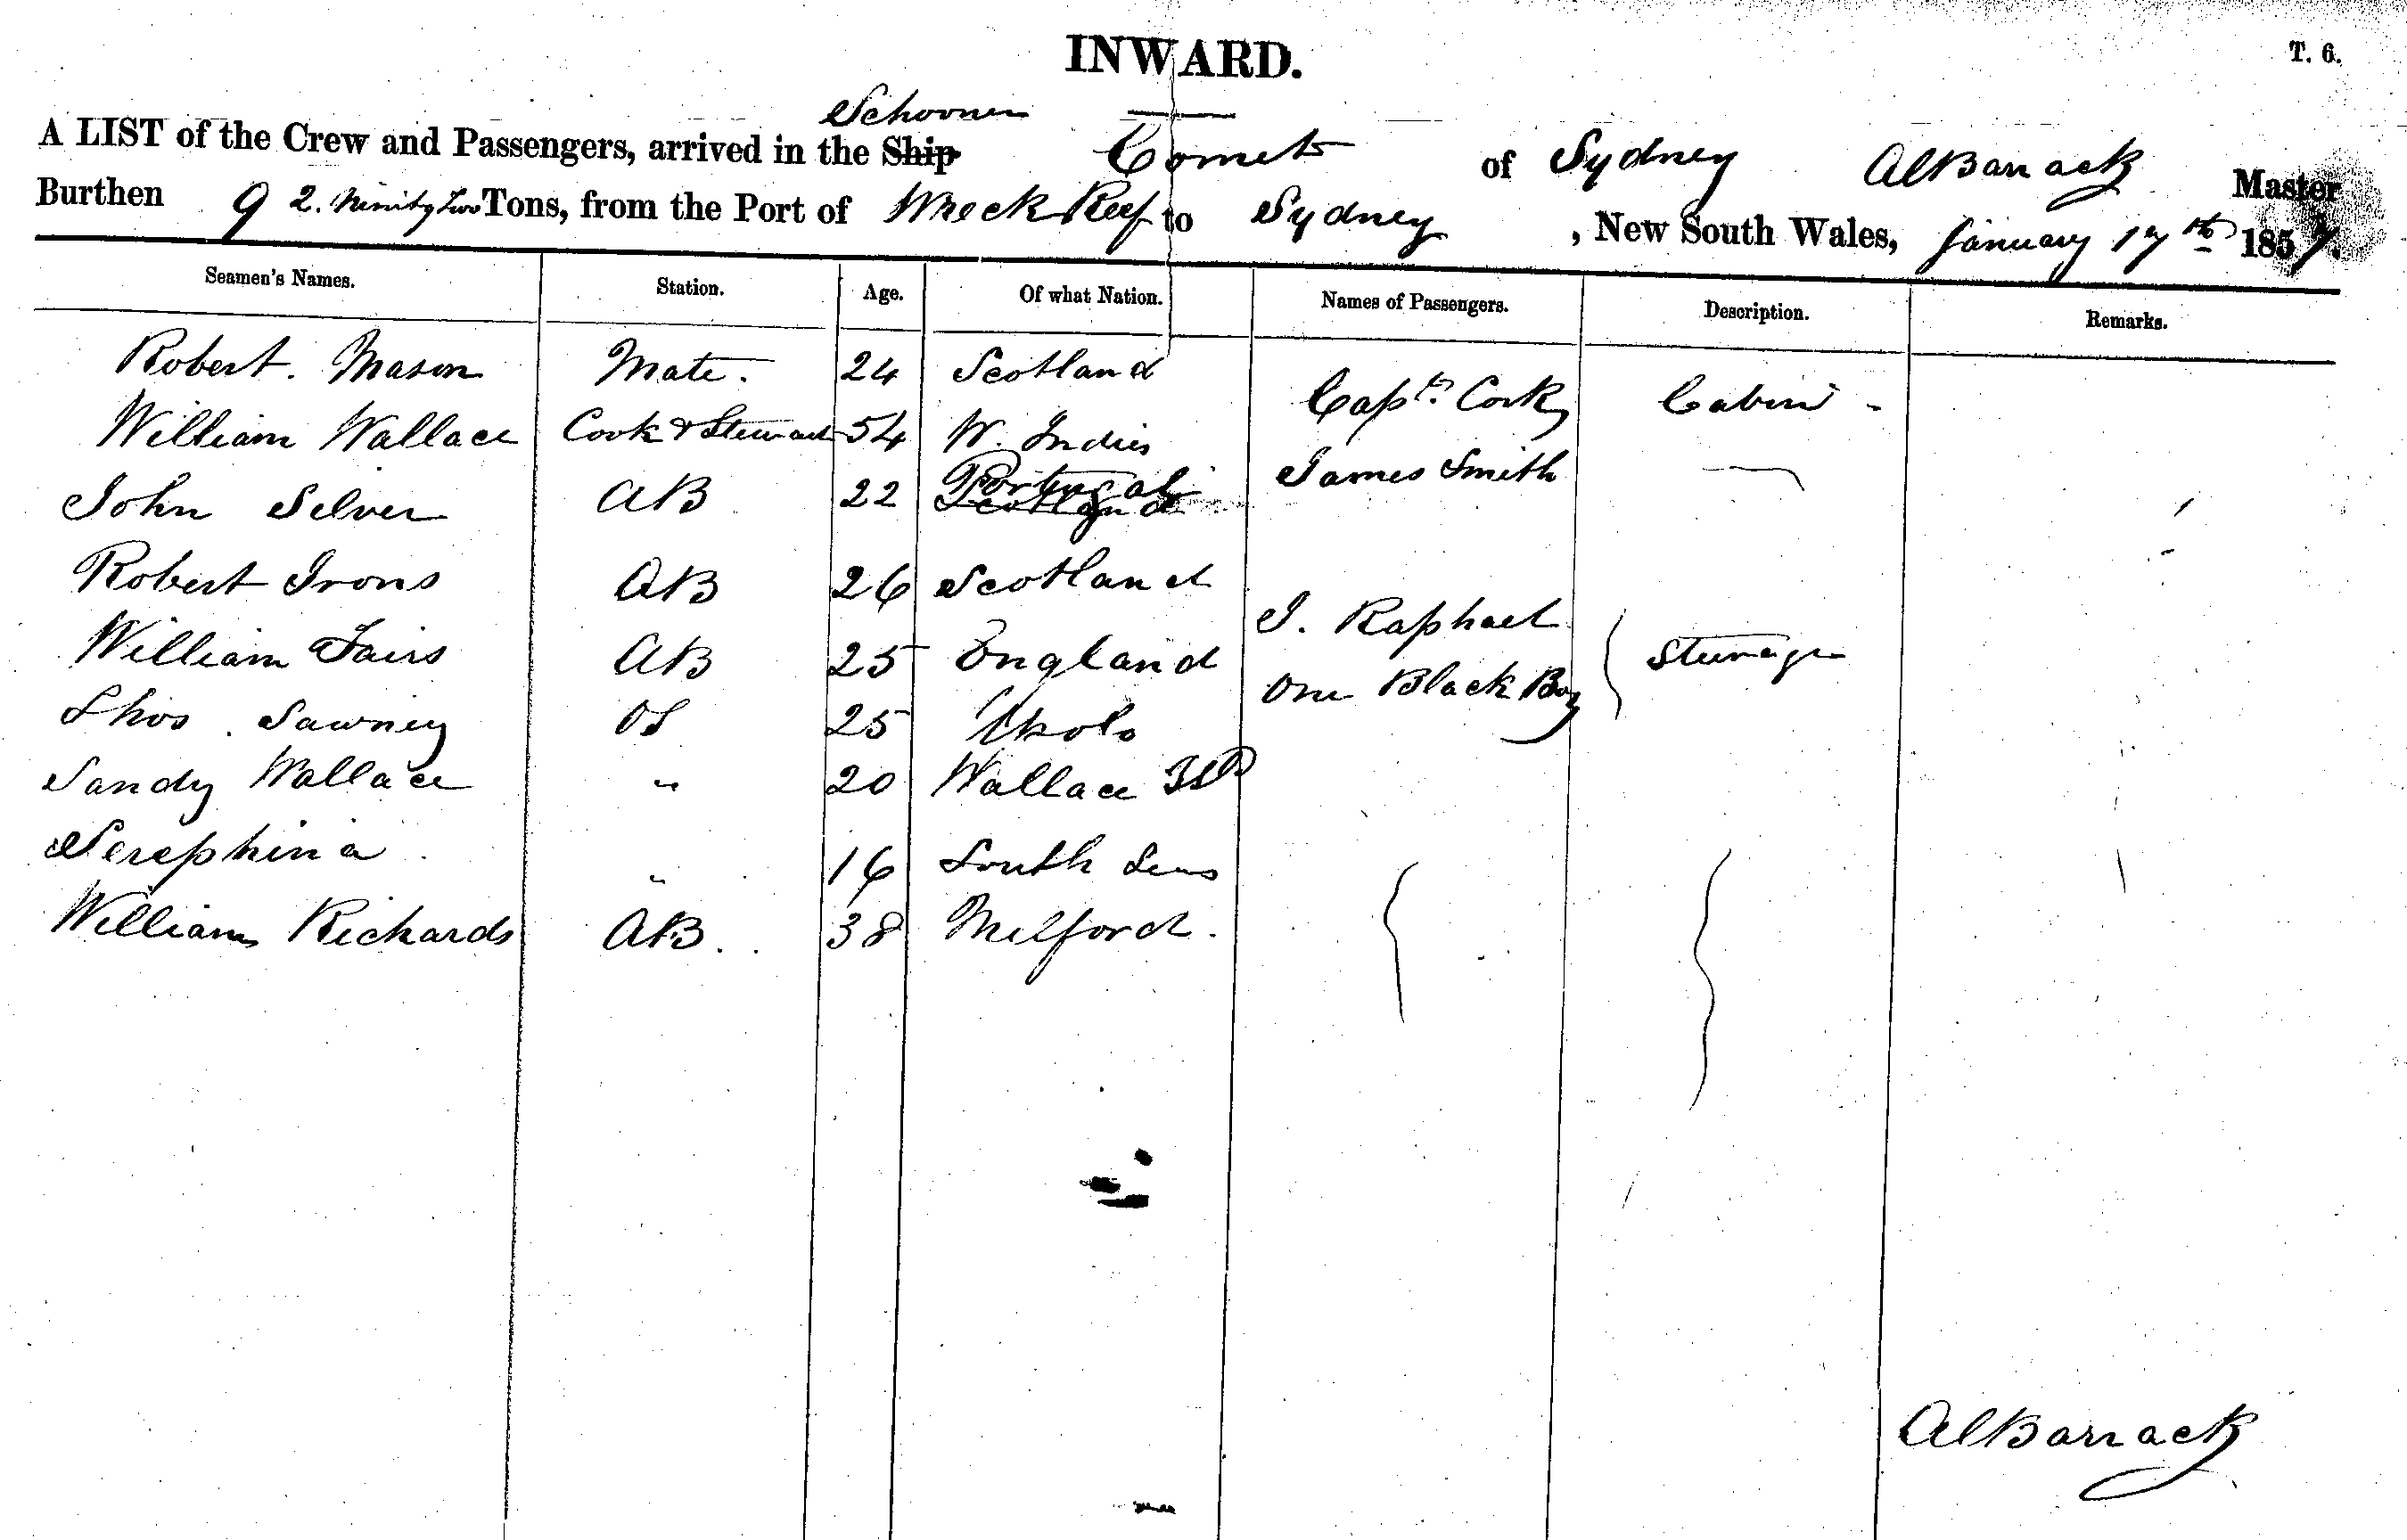 INWARD.
T. 6.
Schooner
A LIST of the Crew and Passengers, arrived in the Ship Comet of Sydney Al Barrack Master
Burthen 92. Ninity two Tons, from the Port of Wreck Reef to Sydney, New South Wales, January 17th 1857.
Seamen's Names. Station. Age. Of what Nation. Names of Passengers. Description. Remarks.
Robert. Mason Mate. 24 Scotland
Captn. Cork Cabin
William Wallace Cook & Steward 54 W. Indies
James Smith
John Silver AB 22 Portugal Scotland
Robert Irons AB 26 Scotland
J. Raphael
William Fairs AB 25 England
Steerage
One Black Boy
Thos. Sawney OS 25 
Sandy Wallace " 20 Wallace Isd
Serephina " 16 South Seas
William Richards AB. 38 Milford.
Al Barrack